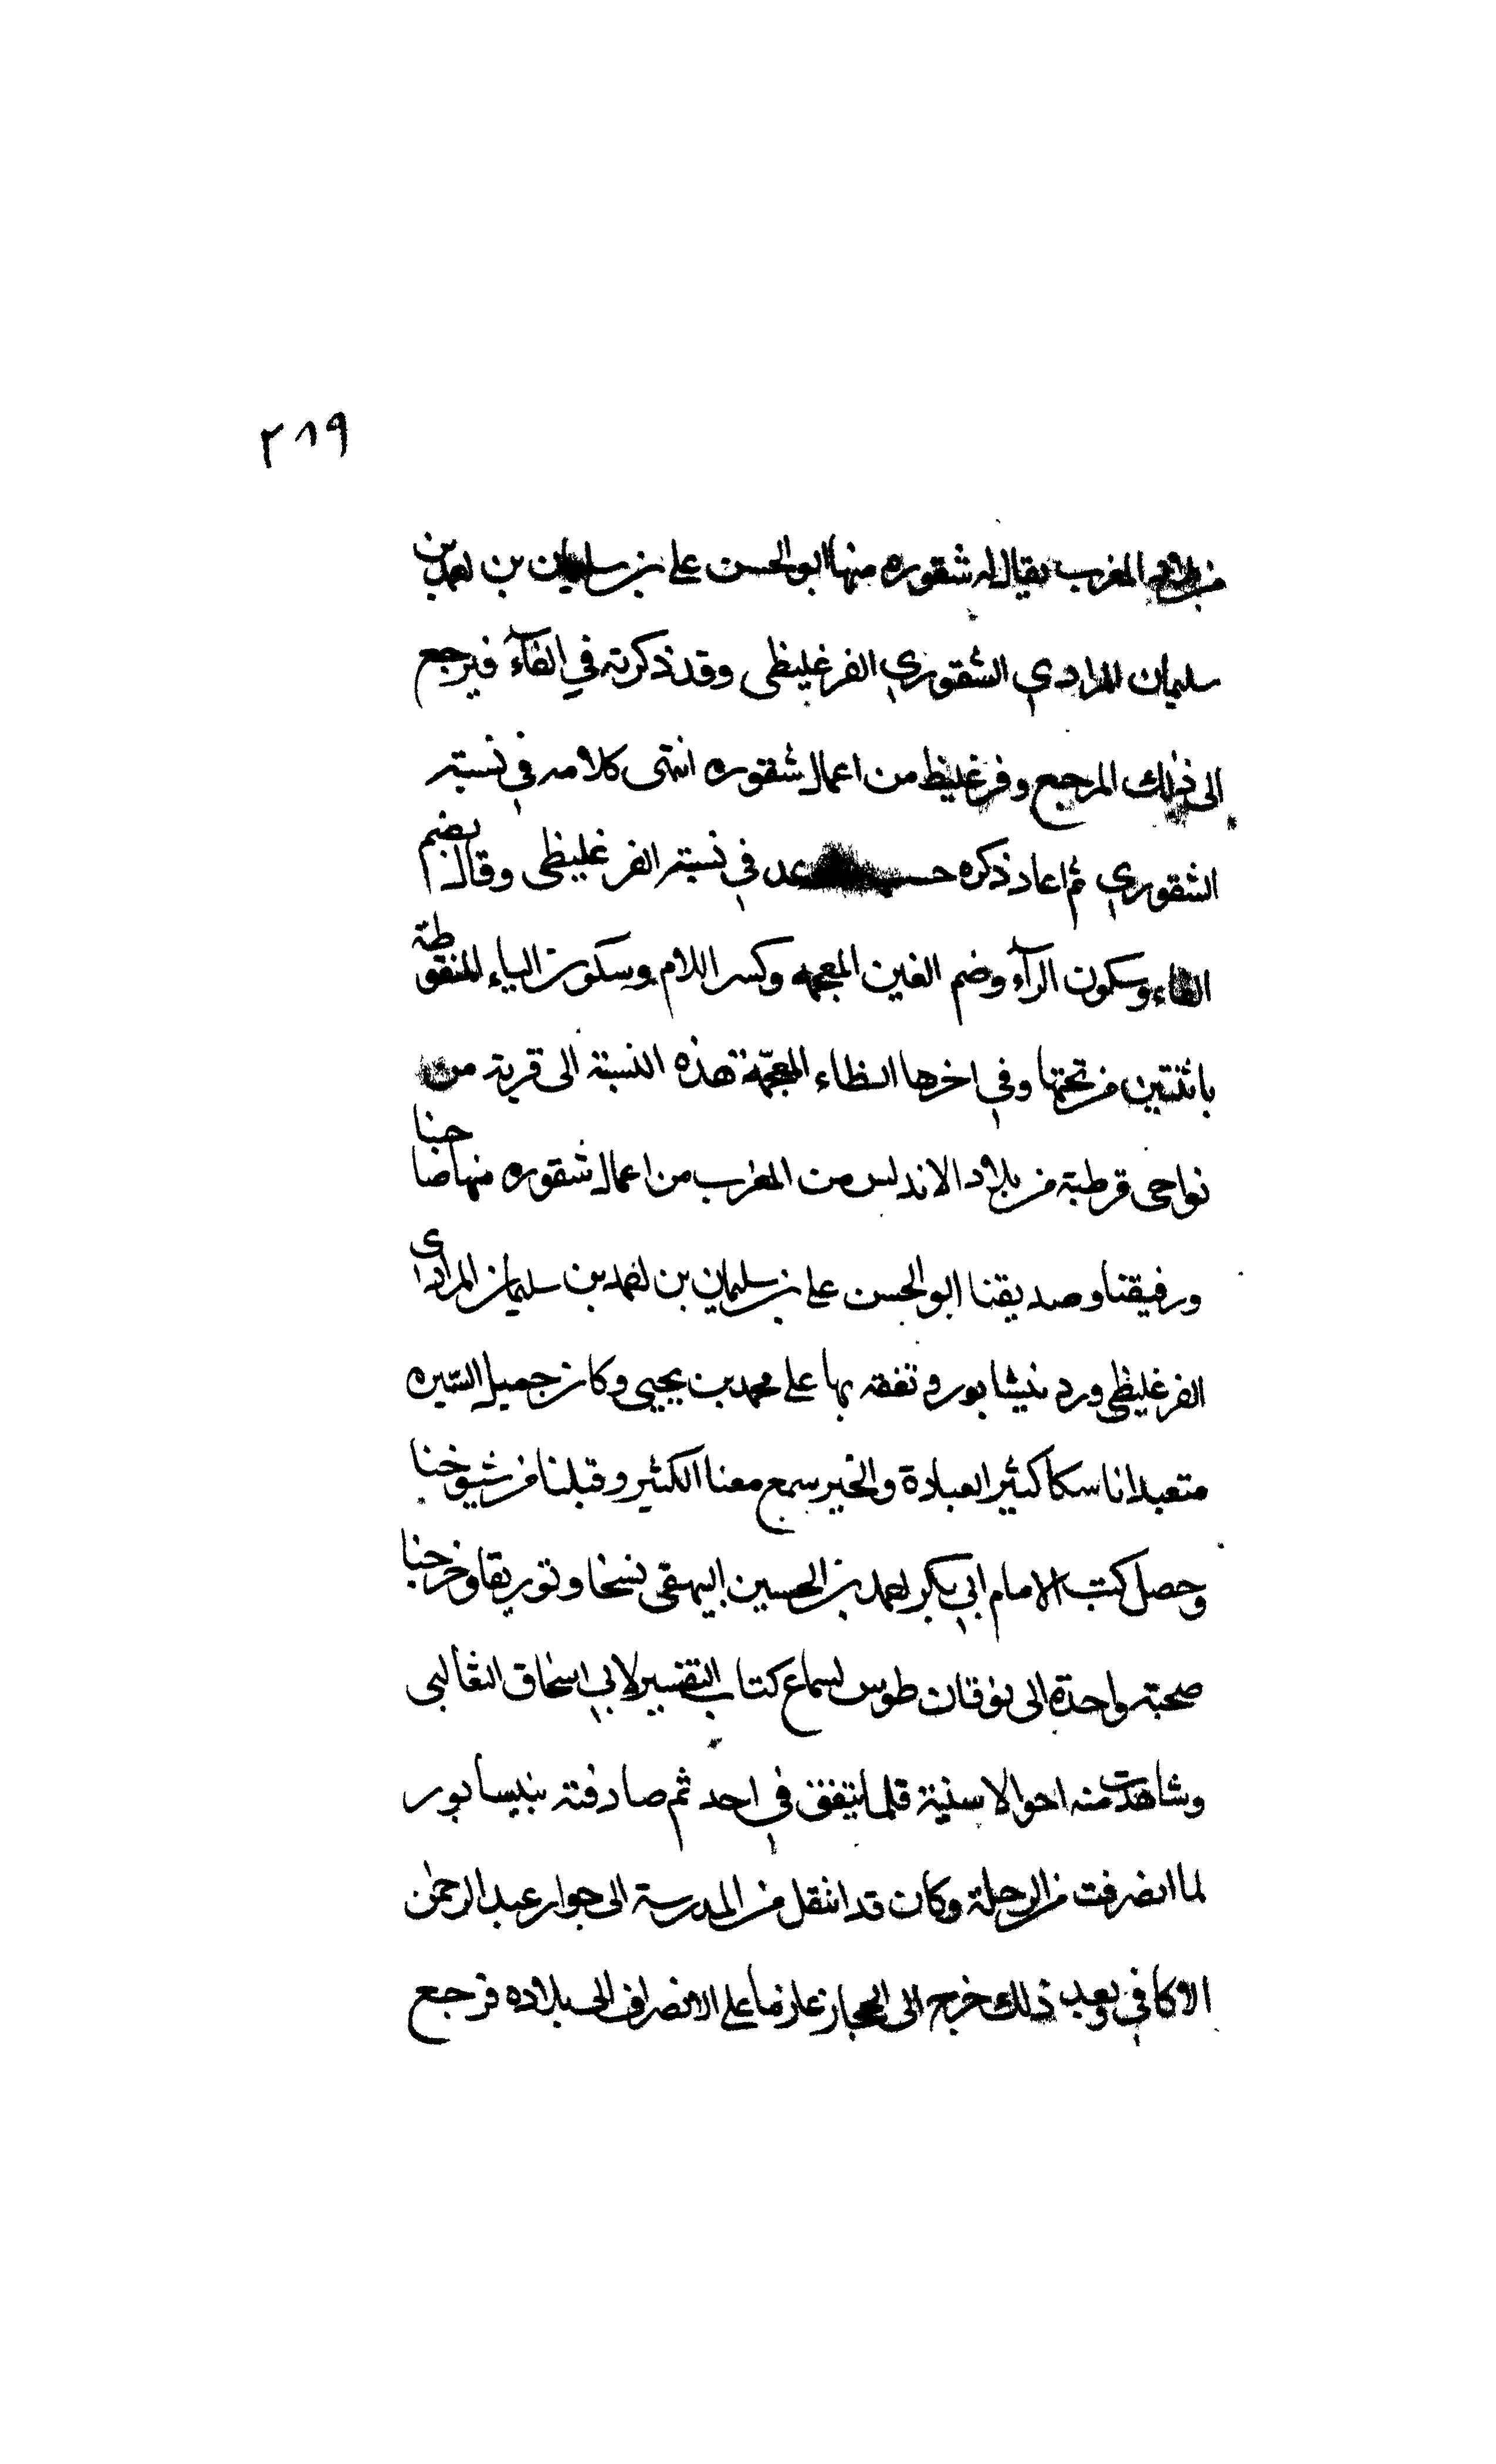 ٢٨٩
من بلاد المغرب يقال له شقوره منها ابو الحسن على بن سليمان بن احمد بن
سليمان المرادي الشقوري الفرغليظى وقد ذكرته في الفآء فيرجع
الى ذلك المرجع وفرغليظ من اعمال شقوره انتهى كلامه في نسبته
الشقوري ثم اعاد ذكره في نسبته الفرغليظى وقال بضم
الفاء وسكون الرآء وضم الغين المعجمه وكسر اللام وسكون الياء المنقوطة
باثنتين من تحتها وفي اخرها الظاء المعجمة هذه النسبة الى قرية من
نواحى قرطبة من بلاد الاندلس من المغرب من اعمال شقوره منها صاحبنا
ورفيقنا وصديقنا ابو الحسن على بن سليمان بن احمد بن سليمان المرادى
الفرغليظى ورد نيشابور وتفقه بها على محمد بن يحيى وكان جميل السّيره
متعبدا ناسكا كثير العبادة والخير سمع معنا الكثير وقبلنا من شيوخنا
وحصل كتب الامام ابي بكر احمد بن الحسين البيهقى نسخا وتوريقا وخرجنا
صحبة واحدة الى نوقان طوس لسماع كتاب التفسير لابي اسحاق الثعالبى
وشاهدت منه احوالا سنية قلما يتفق في احد ثم صادفته بنيسابور
لما انصرفت من الرحلة وكان قد انتقل من المدرسة الى جوار عبد الرحمن
الاكافي وبعد ذلك خرج الى الحجاز عازما على الانصراف الى بلاده فرجع